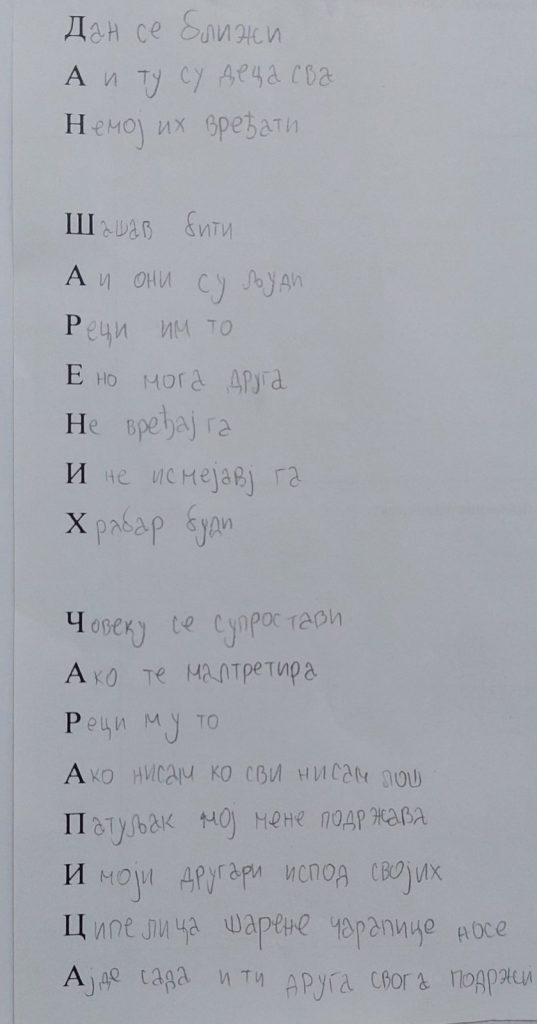 Дан се ближи
А и ту су деца сва
Немој их вређати
Шашав бити
А и они су људи
Реци им то
Е но мога друга
Не вређај га
И не исмејавј га
Храбар буди
Човеку се супростави
Ако те малтретира
Реци му то
Ако нисам ко сви нисам лош
Патуљак мој мене подржава
И моји другари испод својих
Ципелица шарене чарапице носе
Ајде сада и ти друга свога подржи